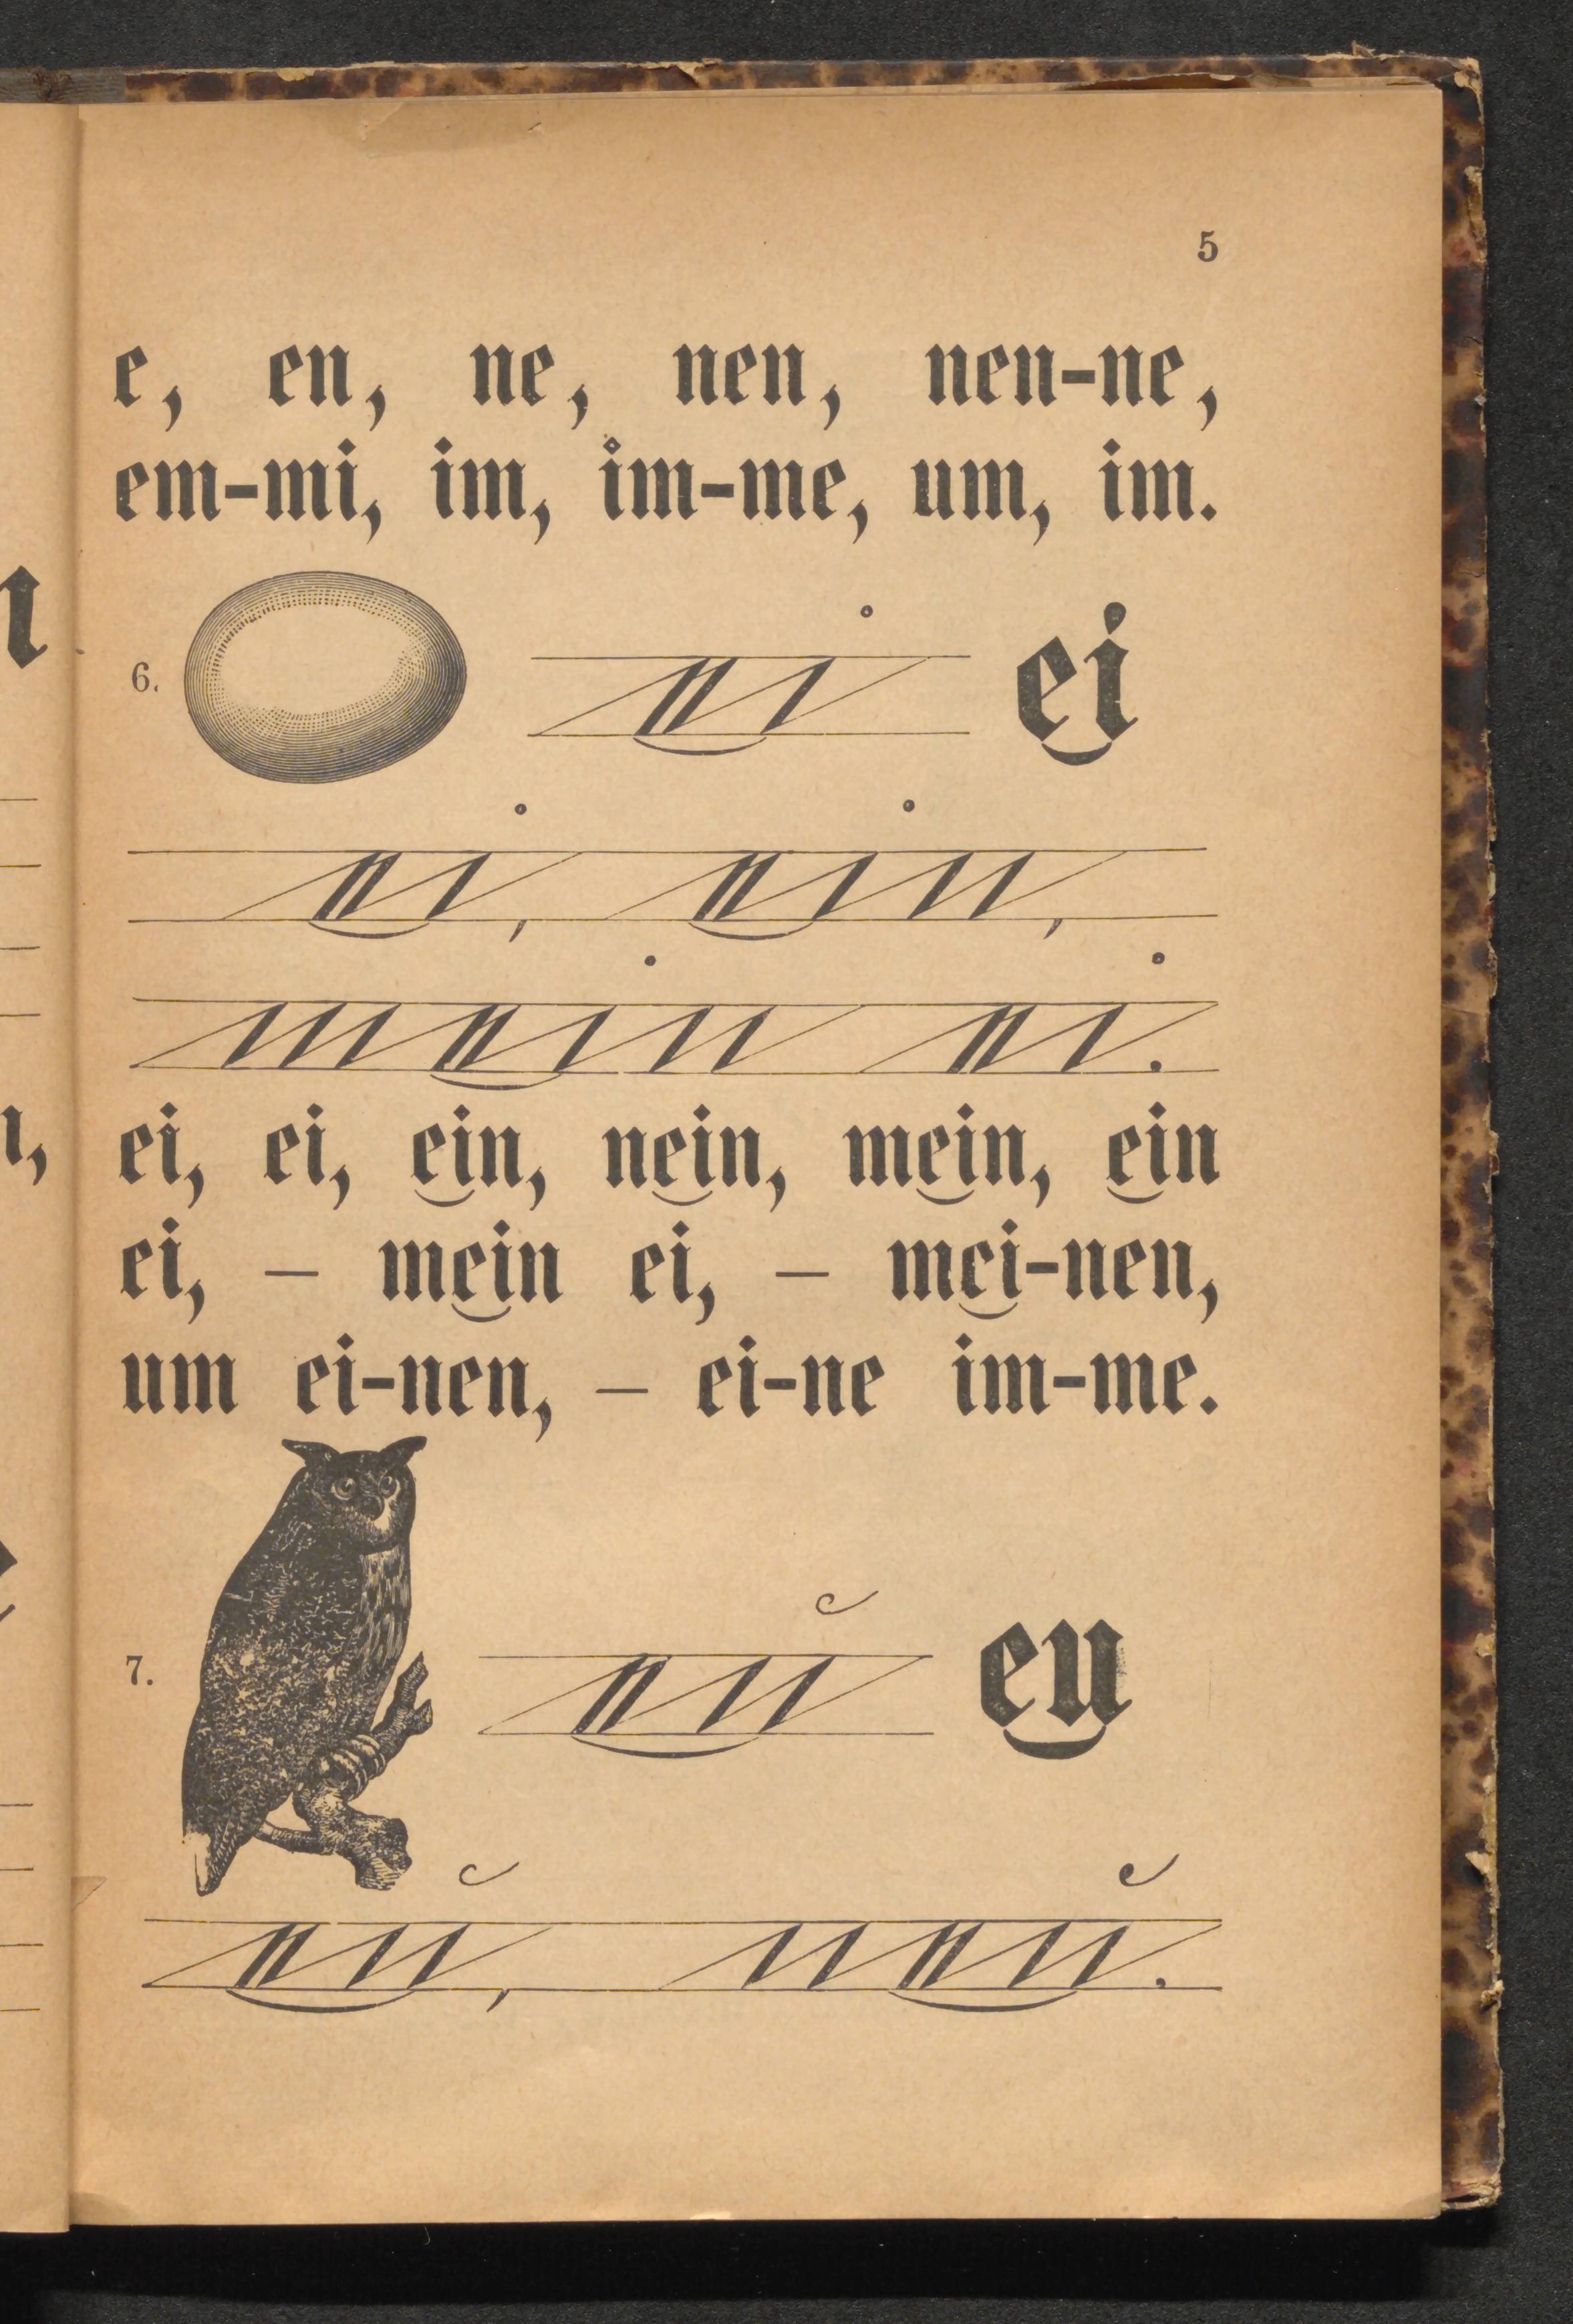 5
e, en, ne, nen, nen-ne,
em-mi, im, im-me, um, im.
6. ei ei
ei, ein,
mein ei.
ei, ei, ein, nein, mein, ein
ei, – mein ei, – mei-nen,
um ei-nen, – ei-ne im-me.
7. eu eu
eu, neu.